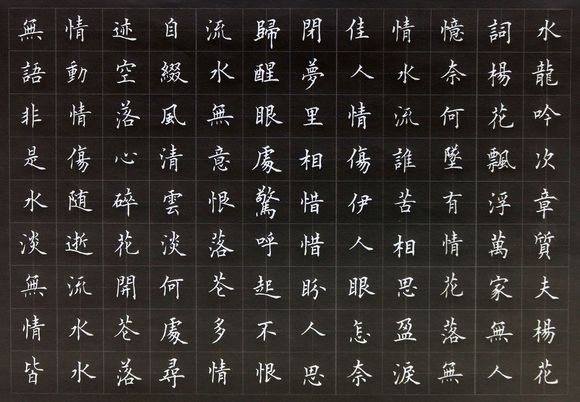 水龍吟次章質夫楊花
詞楊花飄浮萬家無人
憶奈何墜有情花落無
情水流誰苦相思盈淚
佳人情傷伊人眼怎奈
閉夢里相惜惜盼人思
歸醒眼處驚呼起不恨
流水無意恨落芲多情
自綴風清雲淡何處尋
迹空落心碎花開芲落
情動情傷随逝流水水
無語非是水淡無情皆